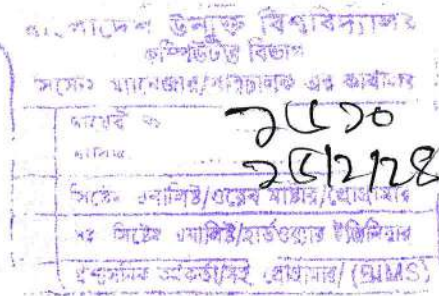 বাংলাদেশ উন্মুক্ত বিশ্ববিদ্যালয়
কম্পিউটার বিভাগ
সিস্টেম ম্যানেজার/পরিচালক এর কার্যালয়
ডায়েরী নং ১৫১০
তারিখ
সিস্টেম এনালিস্ট/ওয়েব মাস্টার/প্রোগ্রামার
সহ সিস্টেম এনালিস্ট/হার্ডওয়্যার ইঞ্জিনিয়ার
প্রশাসনিক কর্মকর্তা/সহ প্রোগ্রামার/ (PIMS)